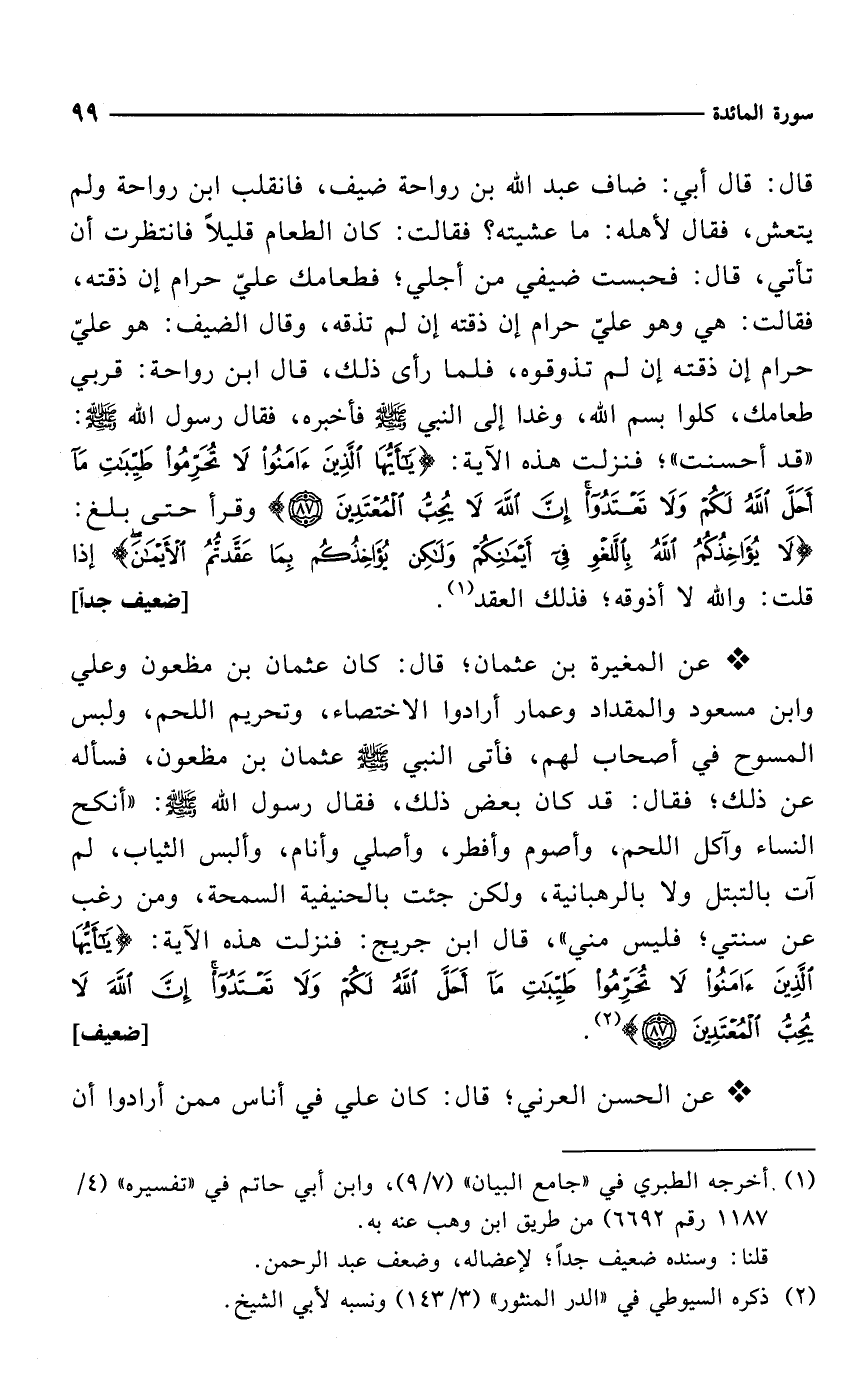 سورة المائدة ٩٩
قال: قال أبي: ضاف عبد الله بن رواحة ضيف، فانقلب ابن رواحة ولم
يتعش، فقال لأهله: ما عشيته؟ فقالت: كان الطعام قليلاً فانتظرت أن
تأتي، قال: فحبست ضيفي من أجلي؛ فطعامك عليّ حرام إن ذقته،
فقالت: هي وهو عليّ حرام إن ذقته إن لم تذقه، وقال الضيف: هو عليّ
حرام إن ذقته إن لم تذوقوه، فلما رأى ذلك، قال ابن رواحة: قربي
طعامك، كلوا بسم الله، وغدا إلى النبي ﷺ فأخبره، فقال رسول الله ﷺ:
«قد أحسنت»؛ فنزلت هذه الآية: ﴿يَٰٓأَيُّهَا ٱلَّذِينَ ءَامَنُوا۟ لَا تُحَرِّمُوا۟ طَيِّبَٰتِ مَآ
أَحَلَّ ٱللَّهُ لَكُمْ وَلَا تَعْتَدُوٓا۟ۚ إِنَّ ٱللَّهَ لَا يُحِبُّ ٱلْمُعْتَدِينَ ۝٨٧﴾ وقرأ حتى بلغ:
﴿لَا يُؤَاخِذُكُمُ ٱللَّهُ بِٱللَّغْوِ فِىٓ أَيْمَٰنِكُمْ وَلَٰكِن يُؤَاخِذُكُم بِمَا عَقَّدتُّمُ ٱلْأَيْمَٰنَۖ﴾ إذا
قلت: والله لا أذوقه؛ فذلك العقد(١). [ضعيف جداً]
❖ عن المغيرة بن عثمان؛ قال: كان عثمان بن مظعون وعلي
وابن مسعود والمقداد وعمار أرادوا الاختصاء، وتحريم اللحم، ولبس
المسوح في أصحاب لهم، فأتى النبي ﷺ عثمان بن مظعون، فسأله
عن ذلك؛ فقال: قد كان بعض ذلك، فقال رسول الله ﷺ: «أنكح
النساء وآكل اللحم، وأصوم وأفطر، وأصلي وأنام، وألبس الثياب، لم
آت بالتبتل ولا بالرهبانية، ولكن جئت بالحنيفية السمحة، ومن رغب
عن سنتي؛ فليس مني»، قال ابن جريج: فنزلت هذه الآية: ﴿يَٰٓأَيُّهَا
ٱلَّذِينَ ءَامَنُوا۟ لَا تُحَرِّمُوا۟ طَيِّبَٰتِ مَآ أَحَلَّ ٱللَّهُ لَكُمْ وَلَا تَعْتَدُوٓا۟ۚ إِنَّ ٱللَّهَ لَا
يُحِبُّ ٱلْمُعْتَدِينَ ۝٨٧﴾(٢). [ضعيف]
❖ عن الحسن العرني؛ قال: كان علي في أناس ممن أرادوا أن
(١) أخرجه الطبري في «جامع البيان» (٧/ ٩)، وابن أبي حاتم في «تفسيره» (٤/
١١٨٧ رقم ٦٦٩٢) من طريق ابن وهب عنه به.
قلنا: وسنده ضعيف جداً؛ لإعضاله، وضعف عبد الرحمن.
(٢) ذكره السيوطي في «الدر المنثور» (٣/ ١٤٣) ونسبه لأبي الشيخ.